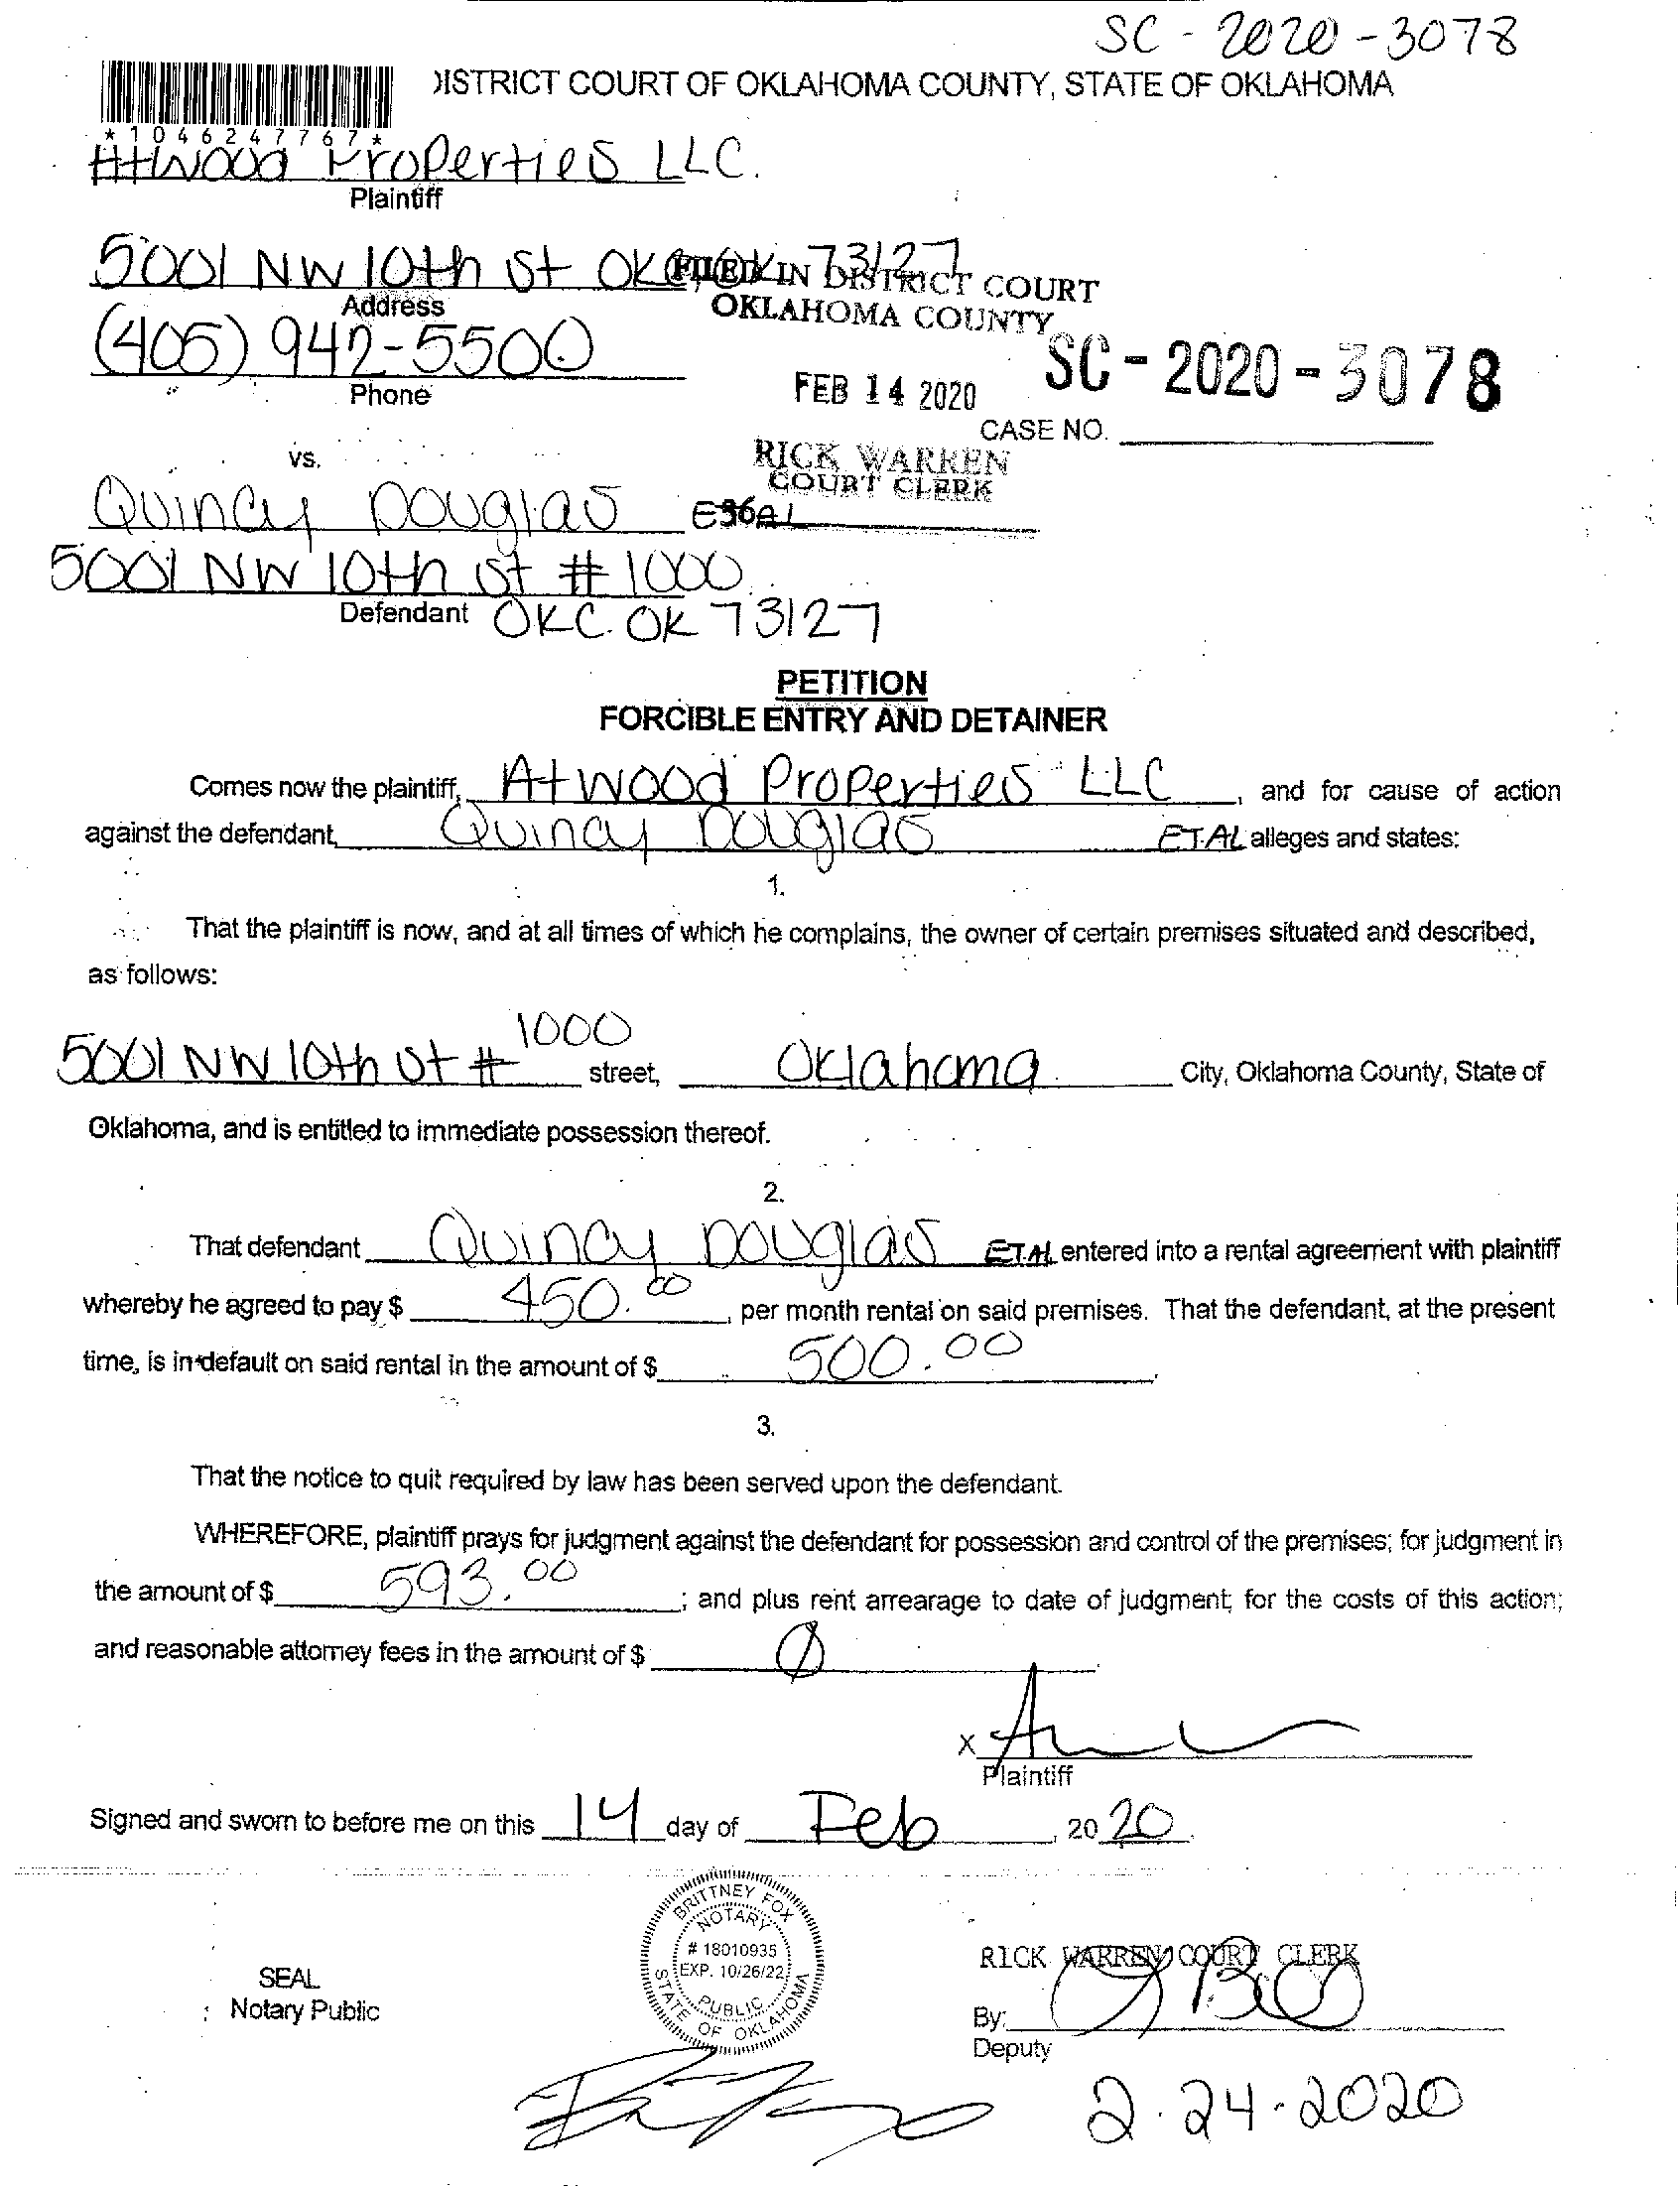 SC - 2020 - 3078
DISTRICT COURT OF OKLAHOMA COUNTY, STATE OF OKLAHOMA
*1046247767*
Atwood Properties LLC.
Plaintiff
5001 NW 10th St OKC, OK 73127
FILED IN DISTRICT COURT
OKLAHOMA COUNTY
Address
(405) 942-5500
Phone
FEB 14 2020
SC - 2020 - 3078
CASE NO.
RICK WARREN
COURT CLERK
vs.
Quincy Douglas ETAL
36
5001 NW 10th St # 1000
Defendant OKC. OK 73127
PETITION
FORCIBLE ENTRY AND DETAINER
Comes now the plaintiff, Atwood Properties LLC, and for cause of action
against the defendant, Quincy Douglas ET.AL alleges and states:
1.
That the plaintiff is now, and at all times of which he complains, the owner of certain premises situated and described,
as follows:
5001 NW 10th St # 1000 street, Oklahoma City, Oklahoma County, State of
Oklahoma, and is entitled to immediate possession thereof.
2.
That defendant Quincy Douglas ET.AL entered into a rental agreement with plaintiff
whereby he agreed to pay $ 450.00, per month rental on said premises. That the defendant, at the present
time, is in default on said rental in the amount of $ 500.00.
3.
That the notice to quit required by law has been served upon the defendant.
WHEREFORE, plaintiff prays for judgment against the defendant for possession and control of the premises; for judgment in
the amount of $ 593.00; and plus rent arrearage to date of judgment; for the costs of this action;
and reasonable attorney fees in the amount of $ Ø.
X
Plaintiff
Signed and sworn to before me on this 14 day of Feb, 2020.
BRITTNEY FOX
NOTARY
# 18010935
EXP. 10/26/22
PUBLIC
STATE OF OKLAHOMA
SEAL
Notary Public
RICK WARREN, COURT CLERK
By:
Deputy
2-24-2020